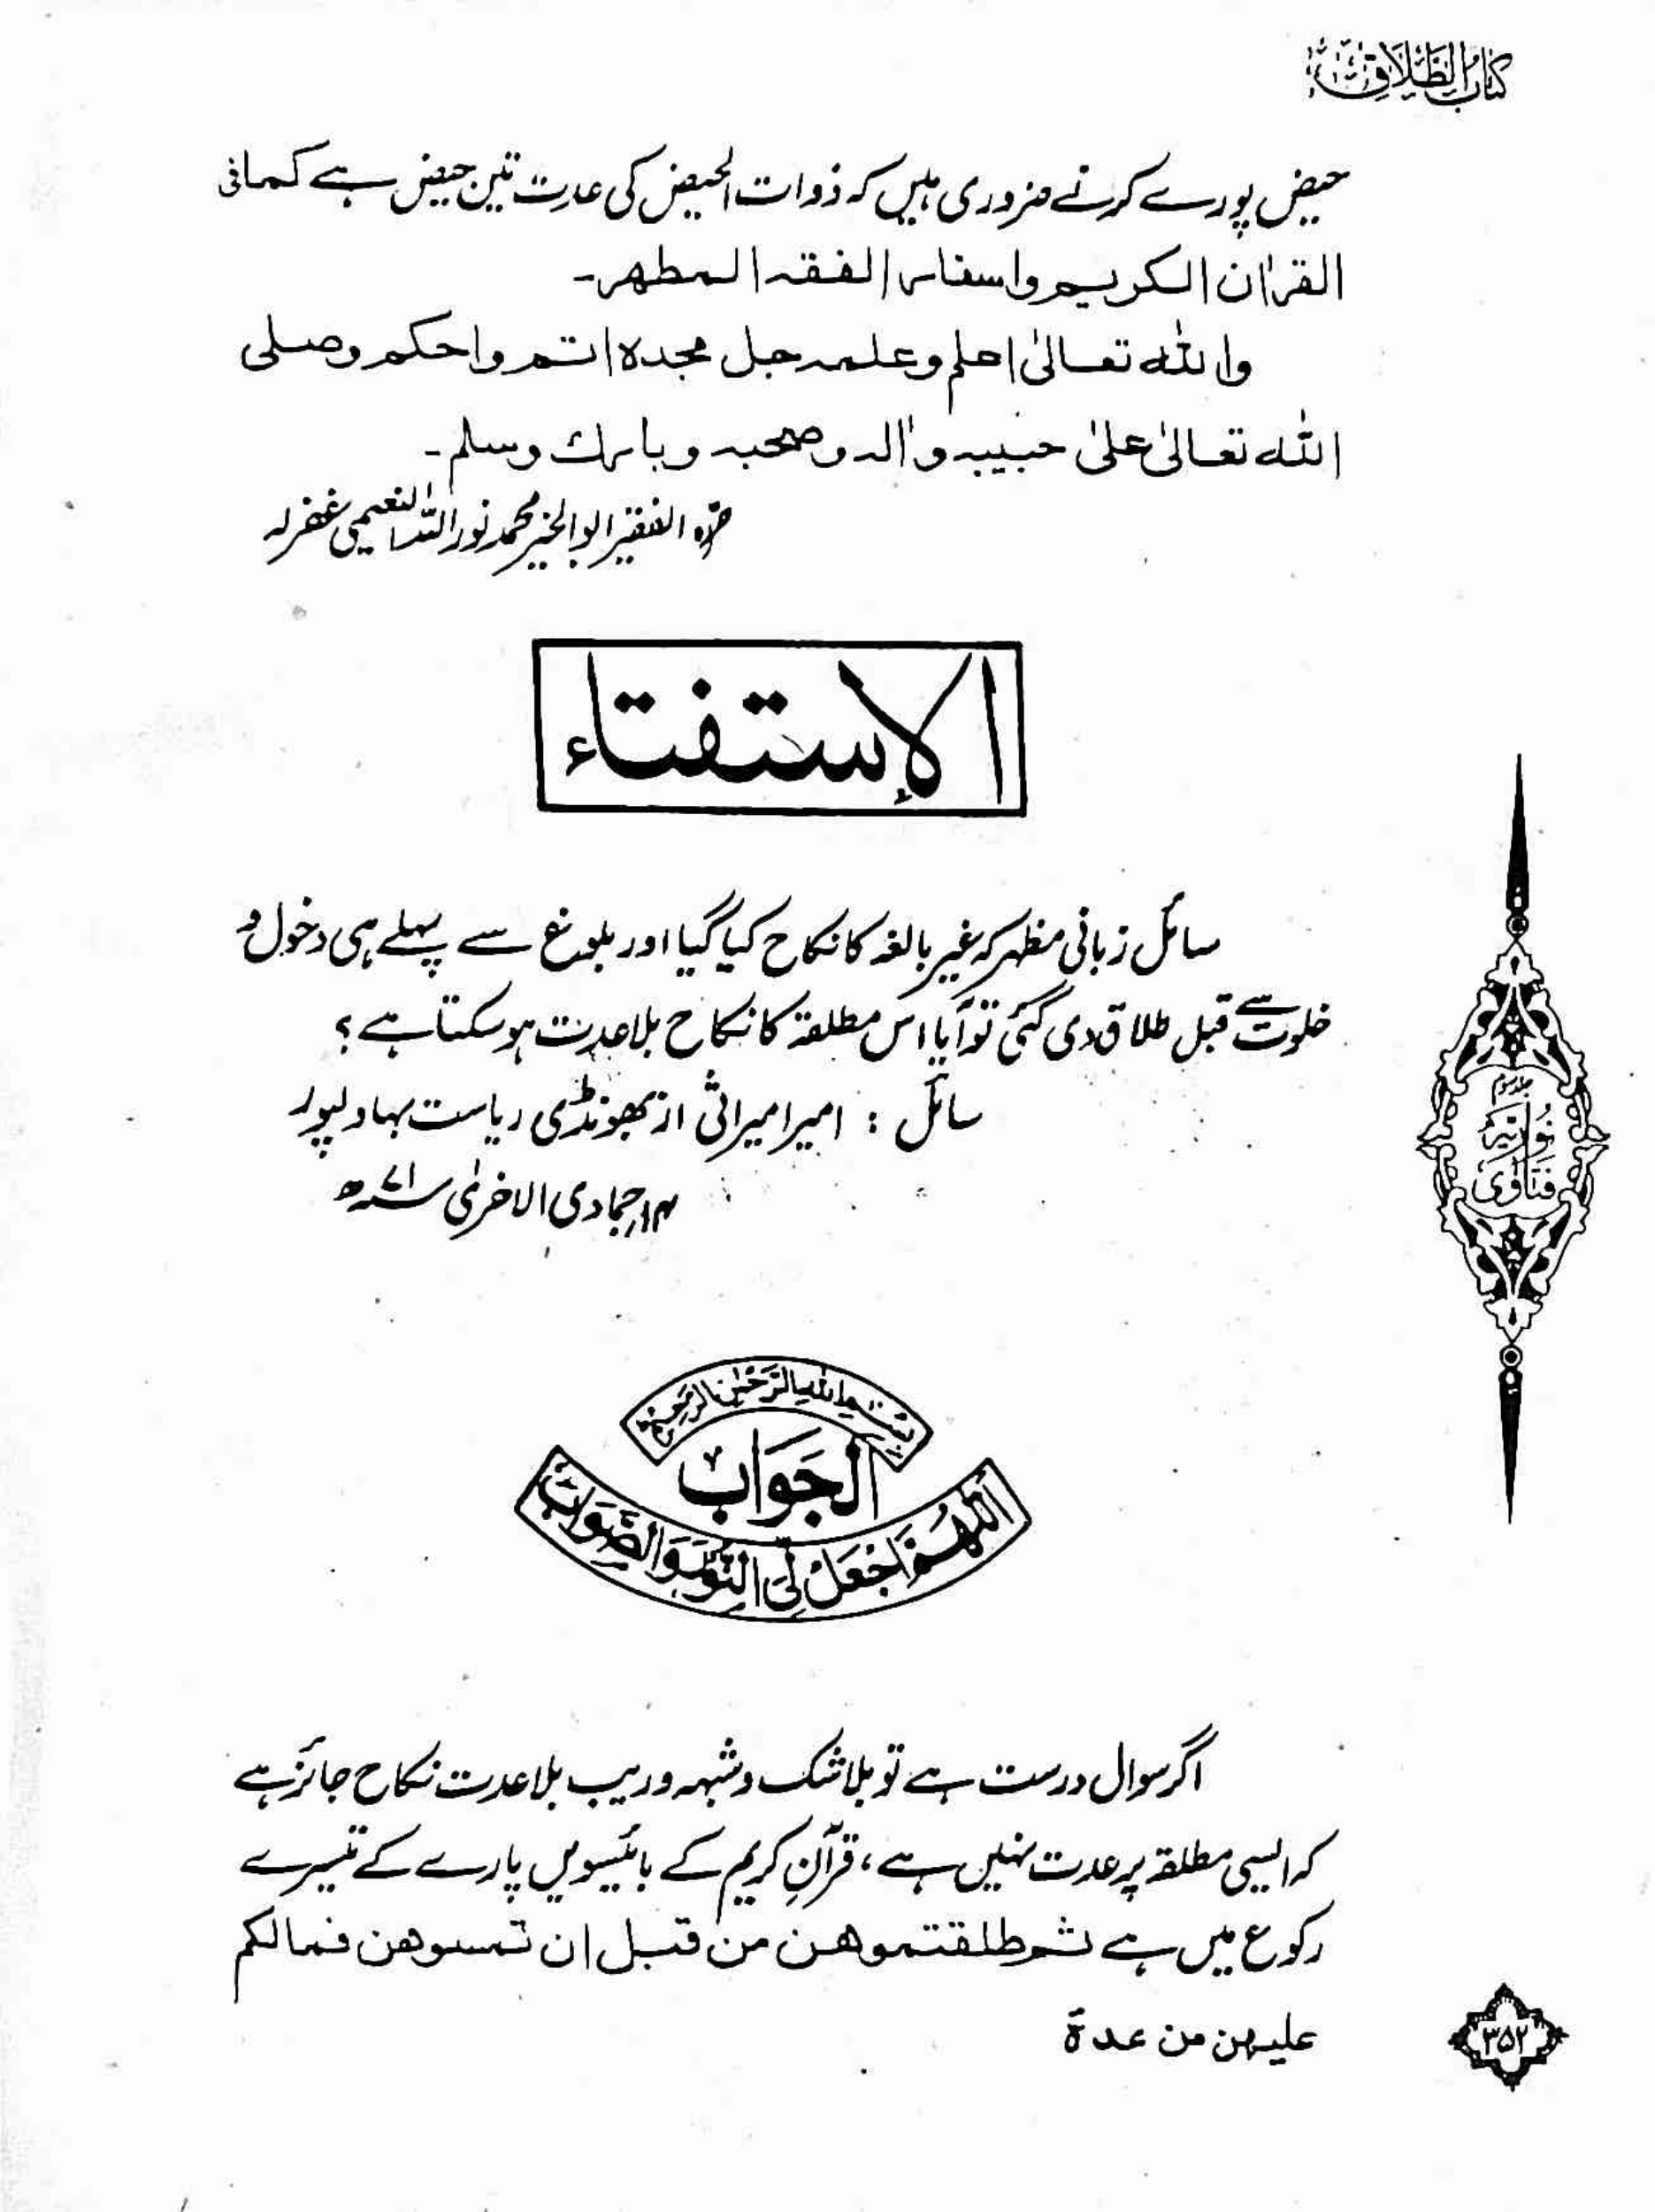 كتاب الطلاق
حیض پورے کرنے ضروری ہیں کہ ذوات الحیض کی عدت تین حیض ہے کما فی
القراٰن الکریم واسفار الفقہ المطھر۔
واللہ تعالیٰ اعلم وعلمہ جل مجدہ اتم واحکم وصلی
اللہ تعالیٰ علیٰ حبیبہ واٰلہ وصحبہ وبارك وسلم۔
حرّہ الفقیر ابوالخیر محمد نور اللہ النعیمی غفرلہ
الإستفتاء
سائل زبانی مظہر کہ غیر بالغہ کا نکاح کیا گیا اور بلوغ سے پہلے ہی دخول و
خلوت سے قبل طلاق دی گئی تو آیا اس مطلقہ کا نکاح بلا عدت ہو سکتا ہے ؟
سائل : امیر امیراثی از بھونڈی ریاست بہاولپور
۱۴ جمادی الاخریٰ ۷۱ھ
نوریہ
فتاوی
بسم الله الرحمن الرحيم
الجَوَابُ
اللهم اجعل لی النور والصواب
اگر سوال درست ہے تو بلا شک و شبہہ و ریب بلا عدت نکاح جائز ہے
کہ ایسی مطلقہ پر عدت نہیں ہے، قرآنِ کریم کے بائیسویں پارے کے تیسرے
رکوع میں ہے ثم طلقتموھن من قبل ان تمسوھن فمالکم
علیھن من عدة
۳۵۲